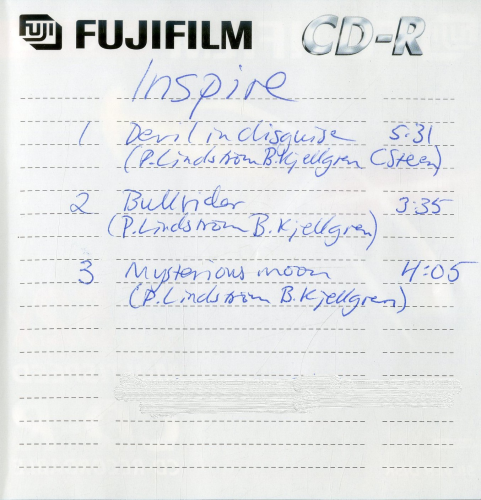 FUJI FUJIFILM CD-R
Inspire
1 Devil in disguise 5:31
(P. Lindström B. Kjellgren C Steen)
2 Bullrider 3:35
(P. Lindström B. Kjellgren)
3 Mysterious moon 4:05
(P. Lindström B. Kjellgren)